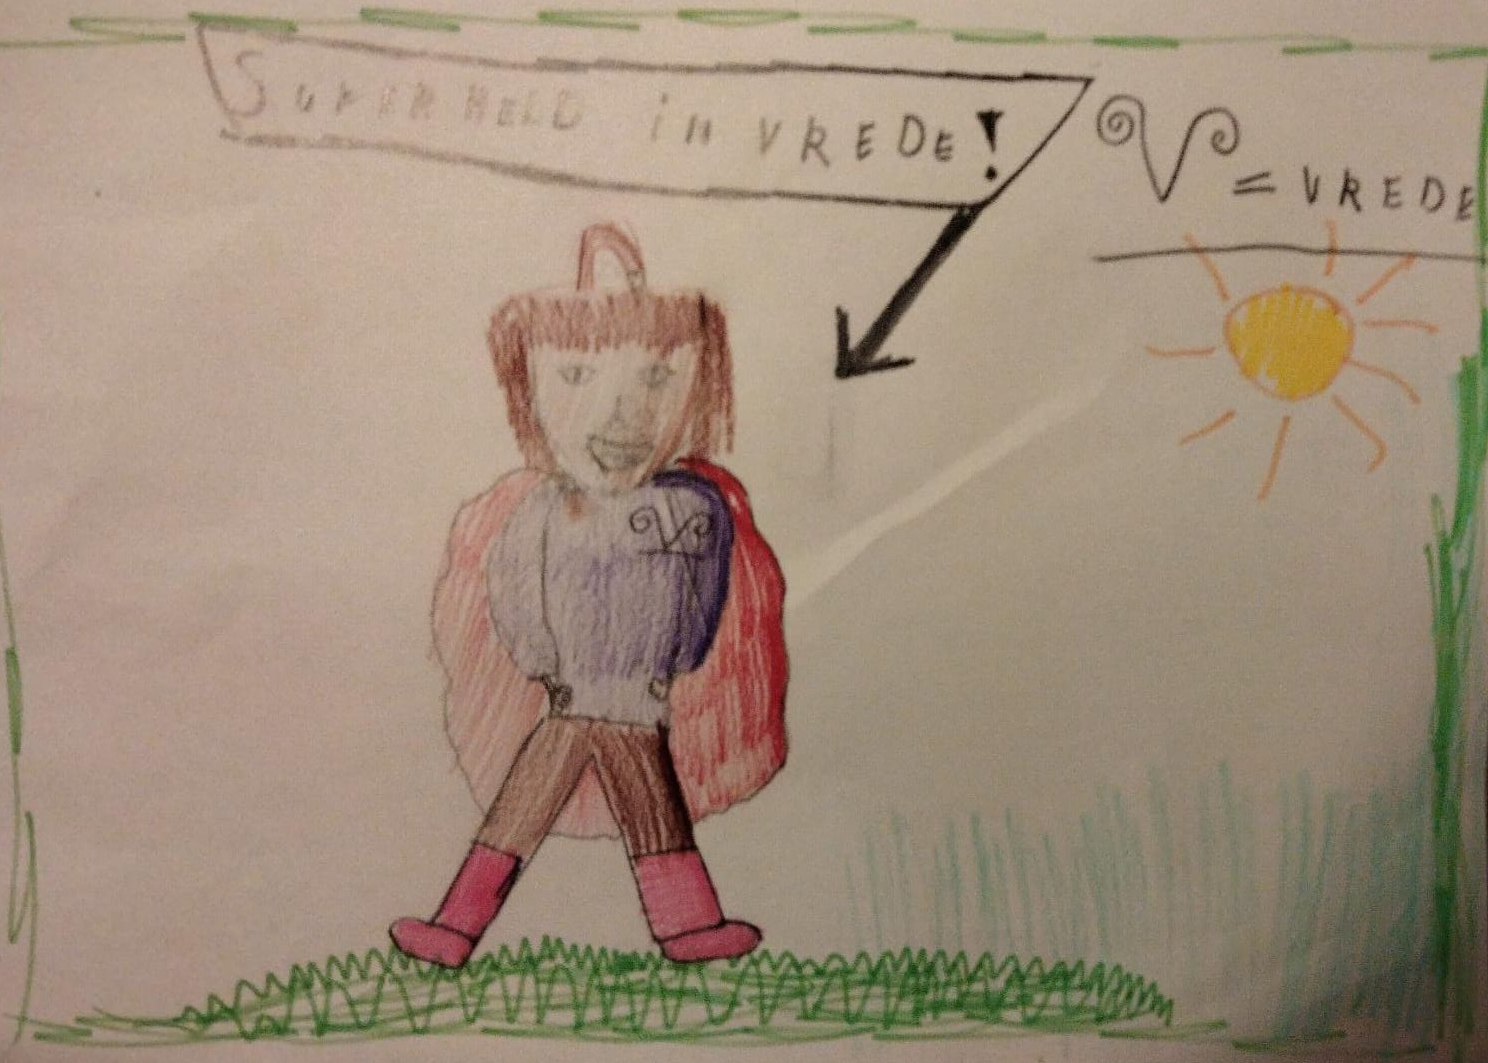 SUPERHELD in VREDE!
V = VREDE
V